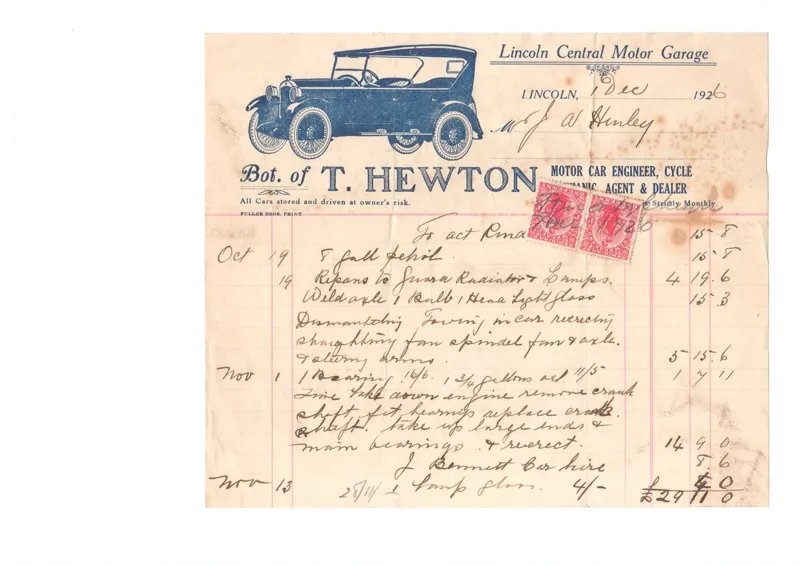 Lincoln Central Motor Garage
LINCOLN, 1 Dec 1926
Mr J A Henley
Bot. of T. HEWTON
MOTOR CAR ENGINEER, CYCLE
AGENT & DEALER
All Cars stored and driven at owner's risk.
Strictly Monthly.
FULLER BROS. PRINT
To act Rend 15 8
Oct 19 8 gall petrol 15 8
19 Repairs to Guard Radiator & Lamps. 4 19 6
Weld axle 1 Bulb 1 Head Light glass 15 3
Dismantling Towing in car recrecting
straighting fan spindel fan & axle.
& steering arms. 5 15 6
Nov 1 1 Bearing 16/6 1 3/4 gallons oil 11/5 1 7 11
Time take down engine remove crank
shaft, fit bearings replace crank
shaft. take up large ends &
main bearings & recrect. 14 9 0
J Bennett Car hire 8 6
Nov 13 28/11/ 1 lamp glass. 4/- 4 0
£29 11 0